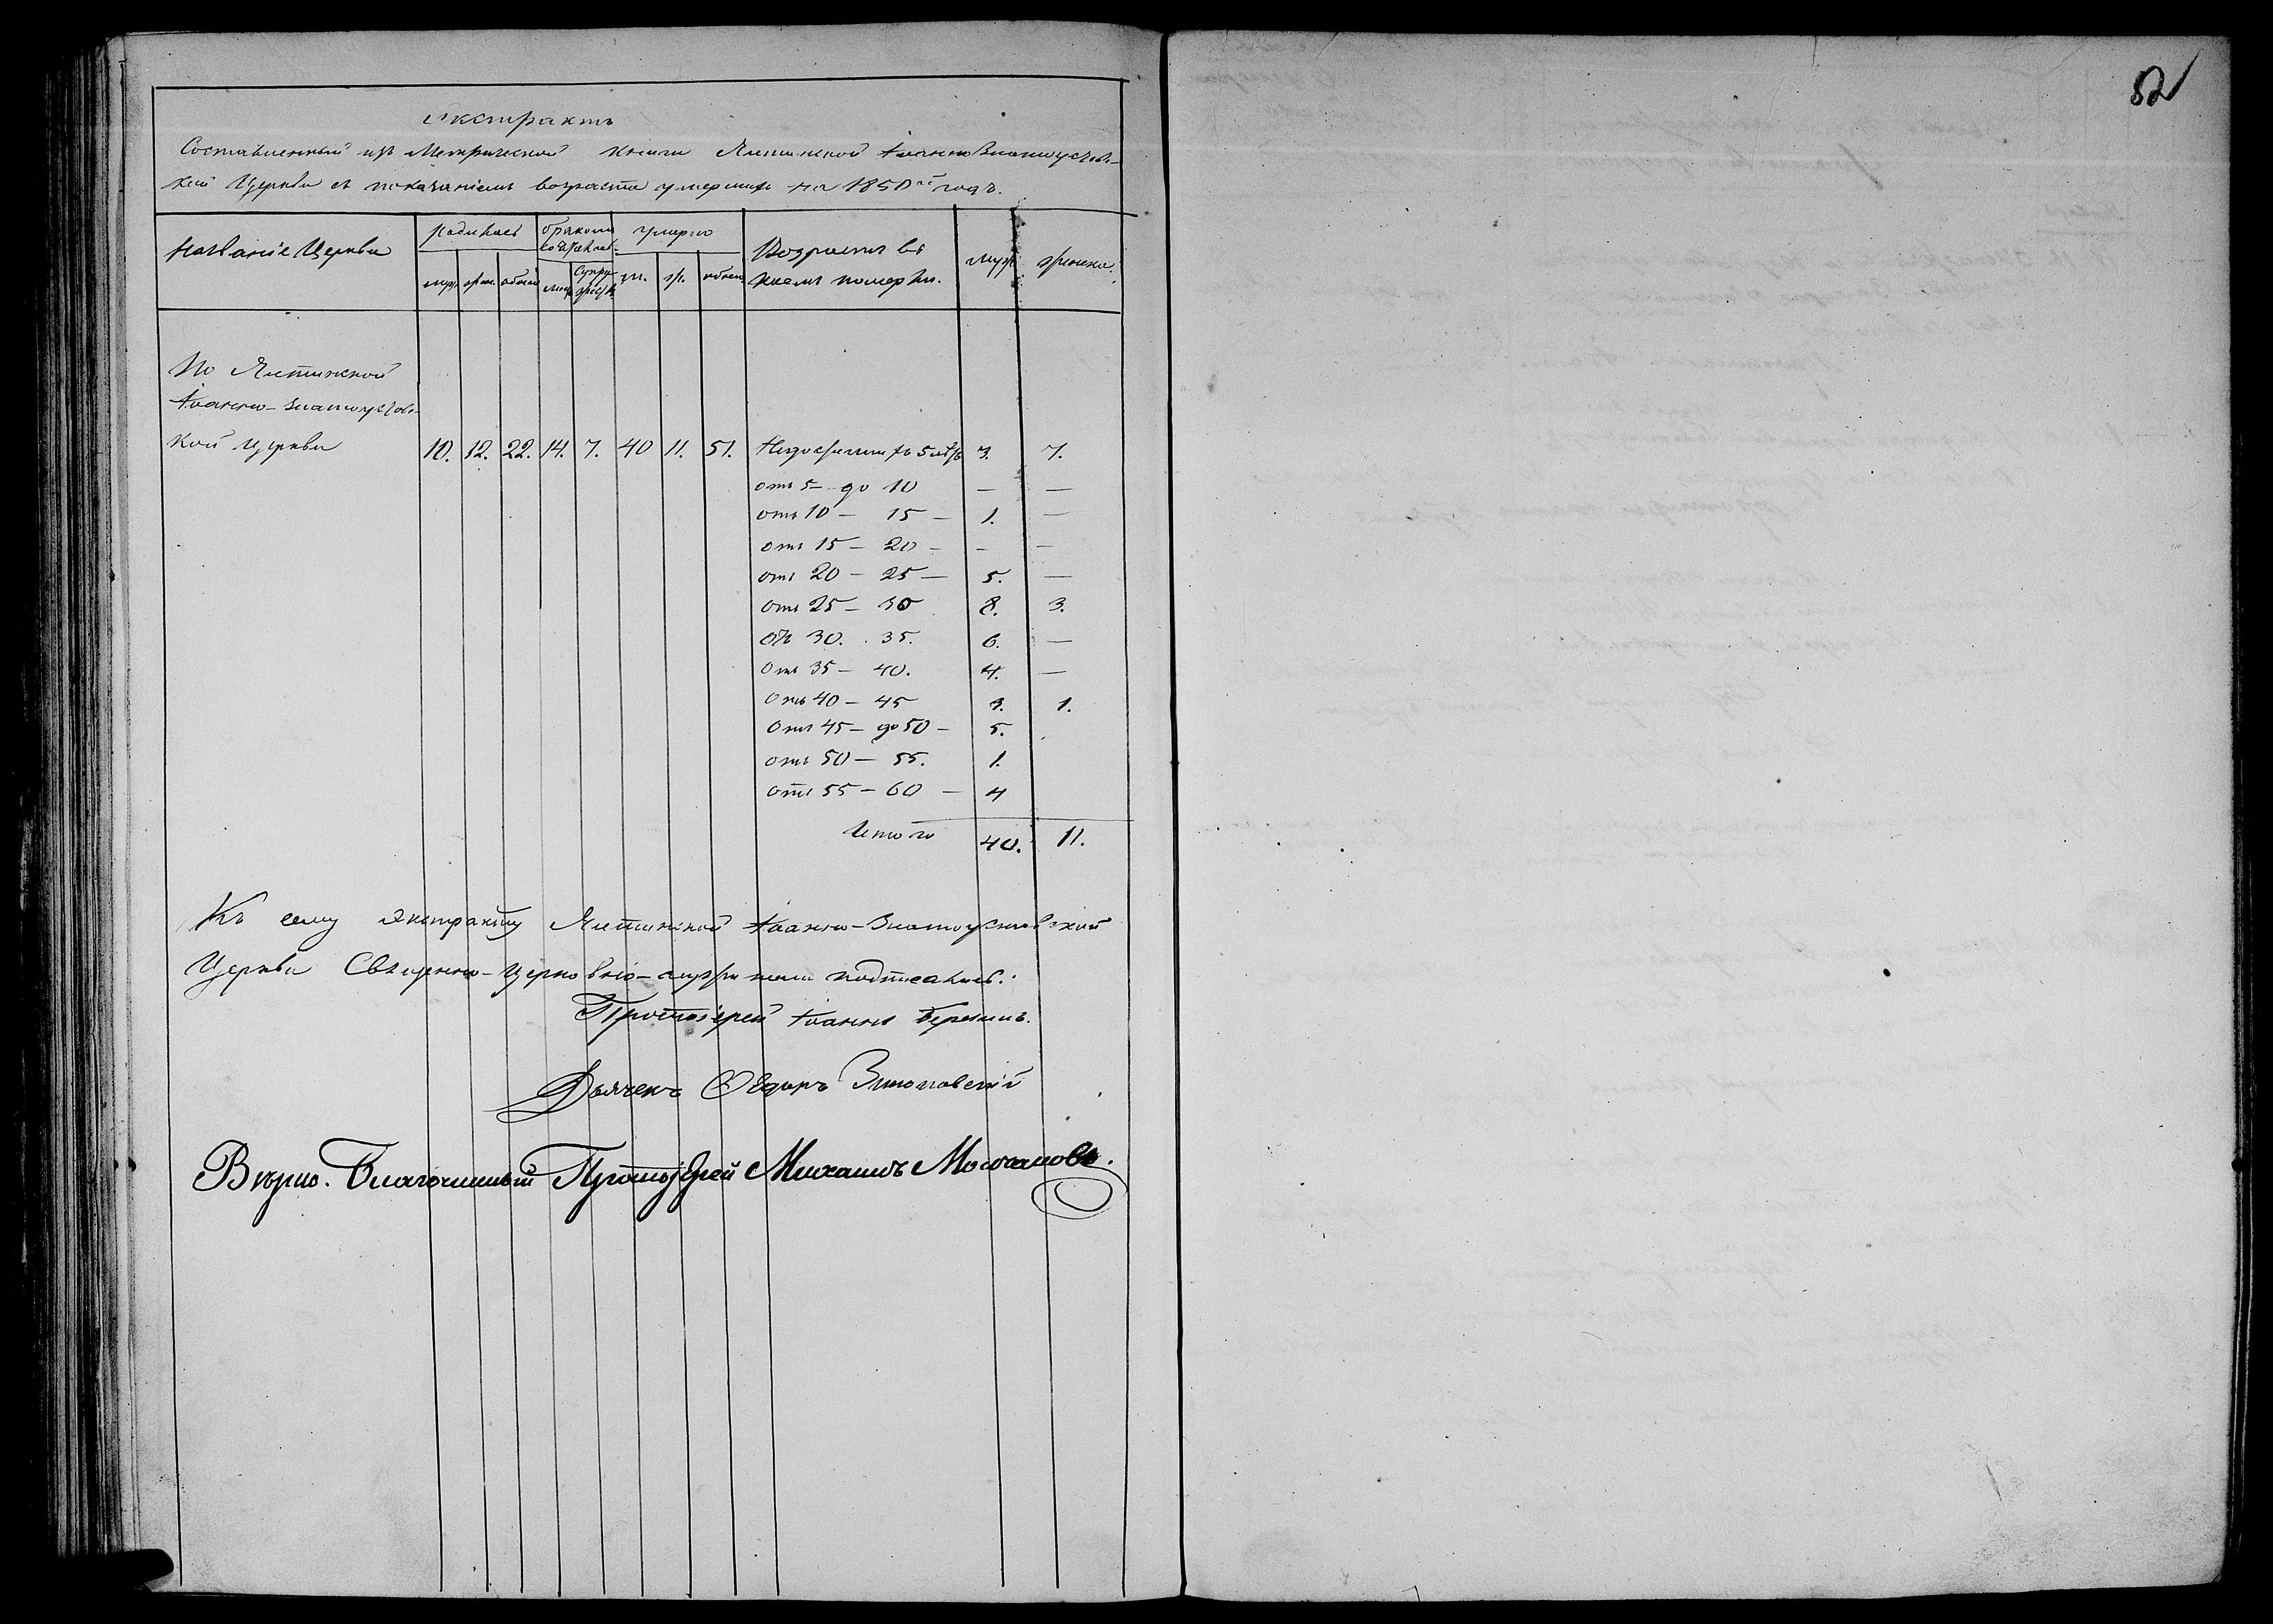 52
Экстрактъ
Составленный изъ Метрической книги Ялтинской Іоанно Златоустов-
кой Церкви съ показаніемъ возраста умершихъ на 1850й годъ.
Названіе Церкви
Родилось
Бракомъ сочеталось
умерло
Возрастъ въ коемъ померли.
муж.
женск.
муж. жен. обоего муж. Супружеств. м. ж. обоего
По Ялтинской
Іоанно-Златоустов-
кой Церкви 10. 12. 22. 14. 7. 40 11. 51. Недожившихъ 5 лѣтъ 3. 7.
отъ 5 - до 10 — —
отъ 10 — 15 — 1. —
отъ 15 — 20 - - —
отъ 20 — 25 — 5. —
отъ 25 — 30 8. 3.
отъ 30. . 35. 6. —
отъ 35 — 40. 4. —
отъ 40 — 45 3. 1.
отъ 45 — до 50 — 5.
отъ 50 — 55. 1.
отъ 55 — 60 — 4
Итого 40. 11.
Къ сему экстракту Ялтинской Іоанно-Златоустовской
Церкви Священно-церковно-служители подписались:
Протоіерей Іоаннъ
Дьячекъ Ѳедоръ
Вѣрно. Благочинный Протоіерей Михаилъ Молчановъ.